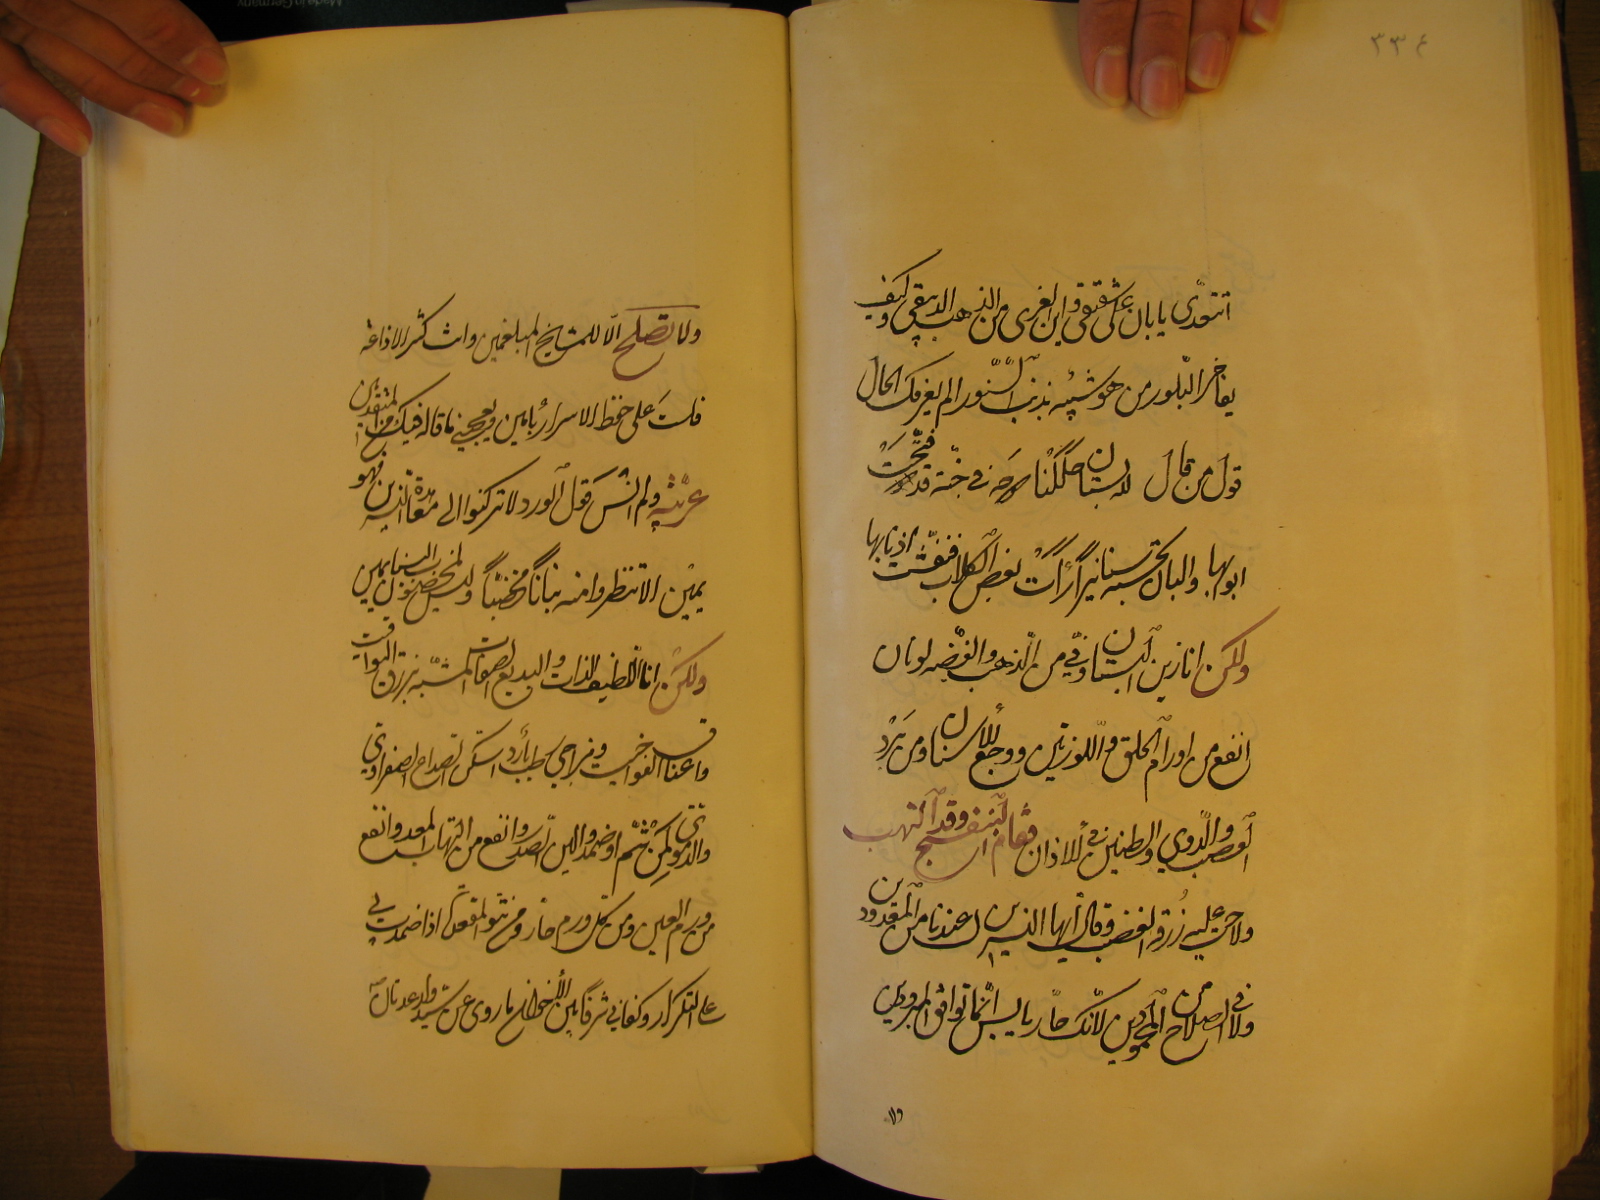 ٣٣٤
اتتعدى يا بان على شقيقي واين الغري من الذهب الدبيقي وكيف
يفاخر البلور من هو شبيه بذنب السنور الم يغرفك الحال
قول من قال لله بستان حللنا دوحه في جنة قد فتحت
ابوابها والبان تحسبه سنانيرا رأت بعض الكلاب فنفشت اذنابها
ولكن انا زين البستان وفي من الذهب والفضة لونان
انفع من اورام الحلق واللوزتين ووجع الاسنان ومن برد
العصب والدوي والطنين في الاذان فقام البنفسج وقد التهب
ولاحت عليه زرقة الغضب وقال ايها النسرين لست عندنا من المعدودين
ولا في الصلاح من المحمودين لانك حار يابس انما توافق المبرودين
ولا
ولا تصلح الا للمشايخ المبلغمين وانت كثير الاذاعة
فلست على حفظ الاسرار بامين ويعجبني ما قاله فيك من المتقدمين
عربيه ولم انس قول الورد لا تركنوا الى معاهدة النسرين فهو
يمين الا تنظروا منه بنانا مخضبا وليس لمخضوب البنان يمين
ولكن انا اللطيف الذات والبديع الصفات المشبه بزرق اليواقيت
واعناق الفواخيت ومزاجي رطب بارد اسكن الصداع الصفراوي
والدموي لمن شم او ضمد والين الصدر وانفع من التهاب المعد وانفع
من ورم العين ومن كل ورم حار ومن نتو المقعدة اذا ضمد بي
على التكرار وكفاني شرفا بين الاخوان ما روي عن